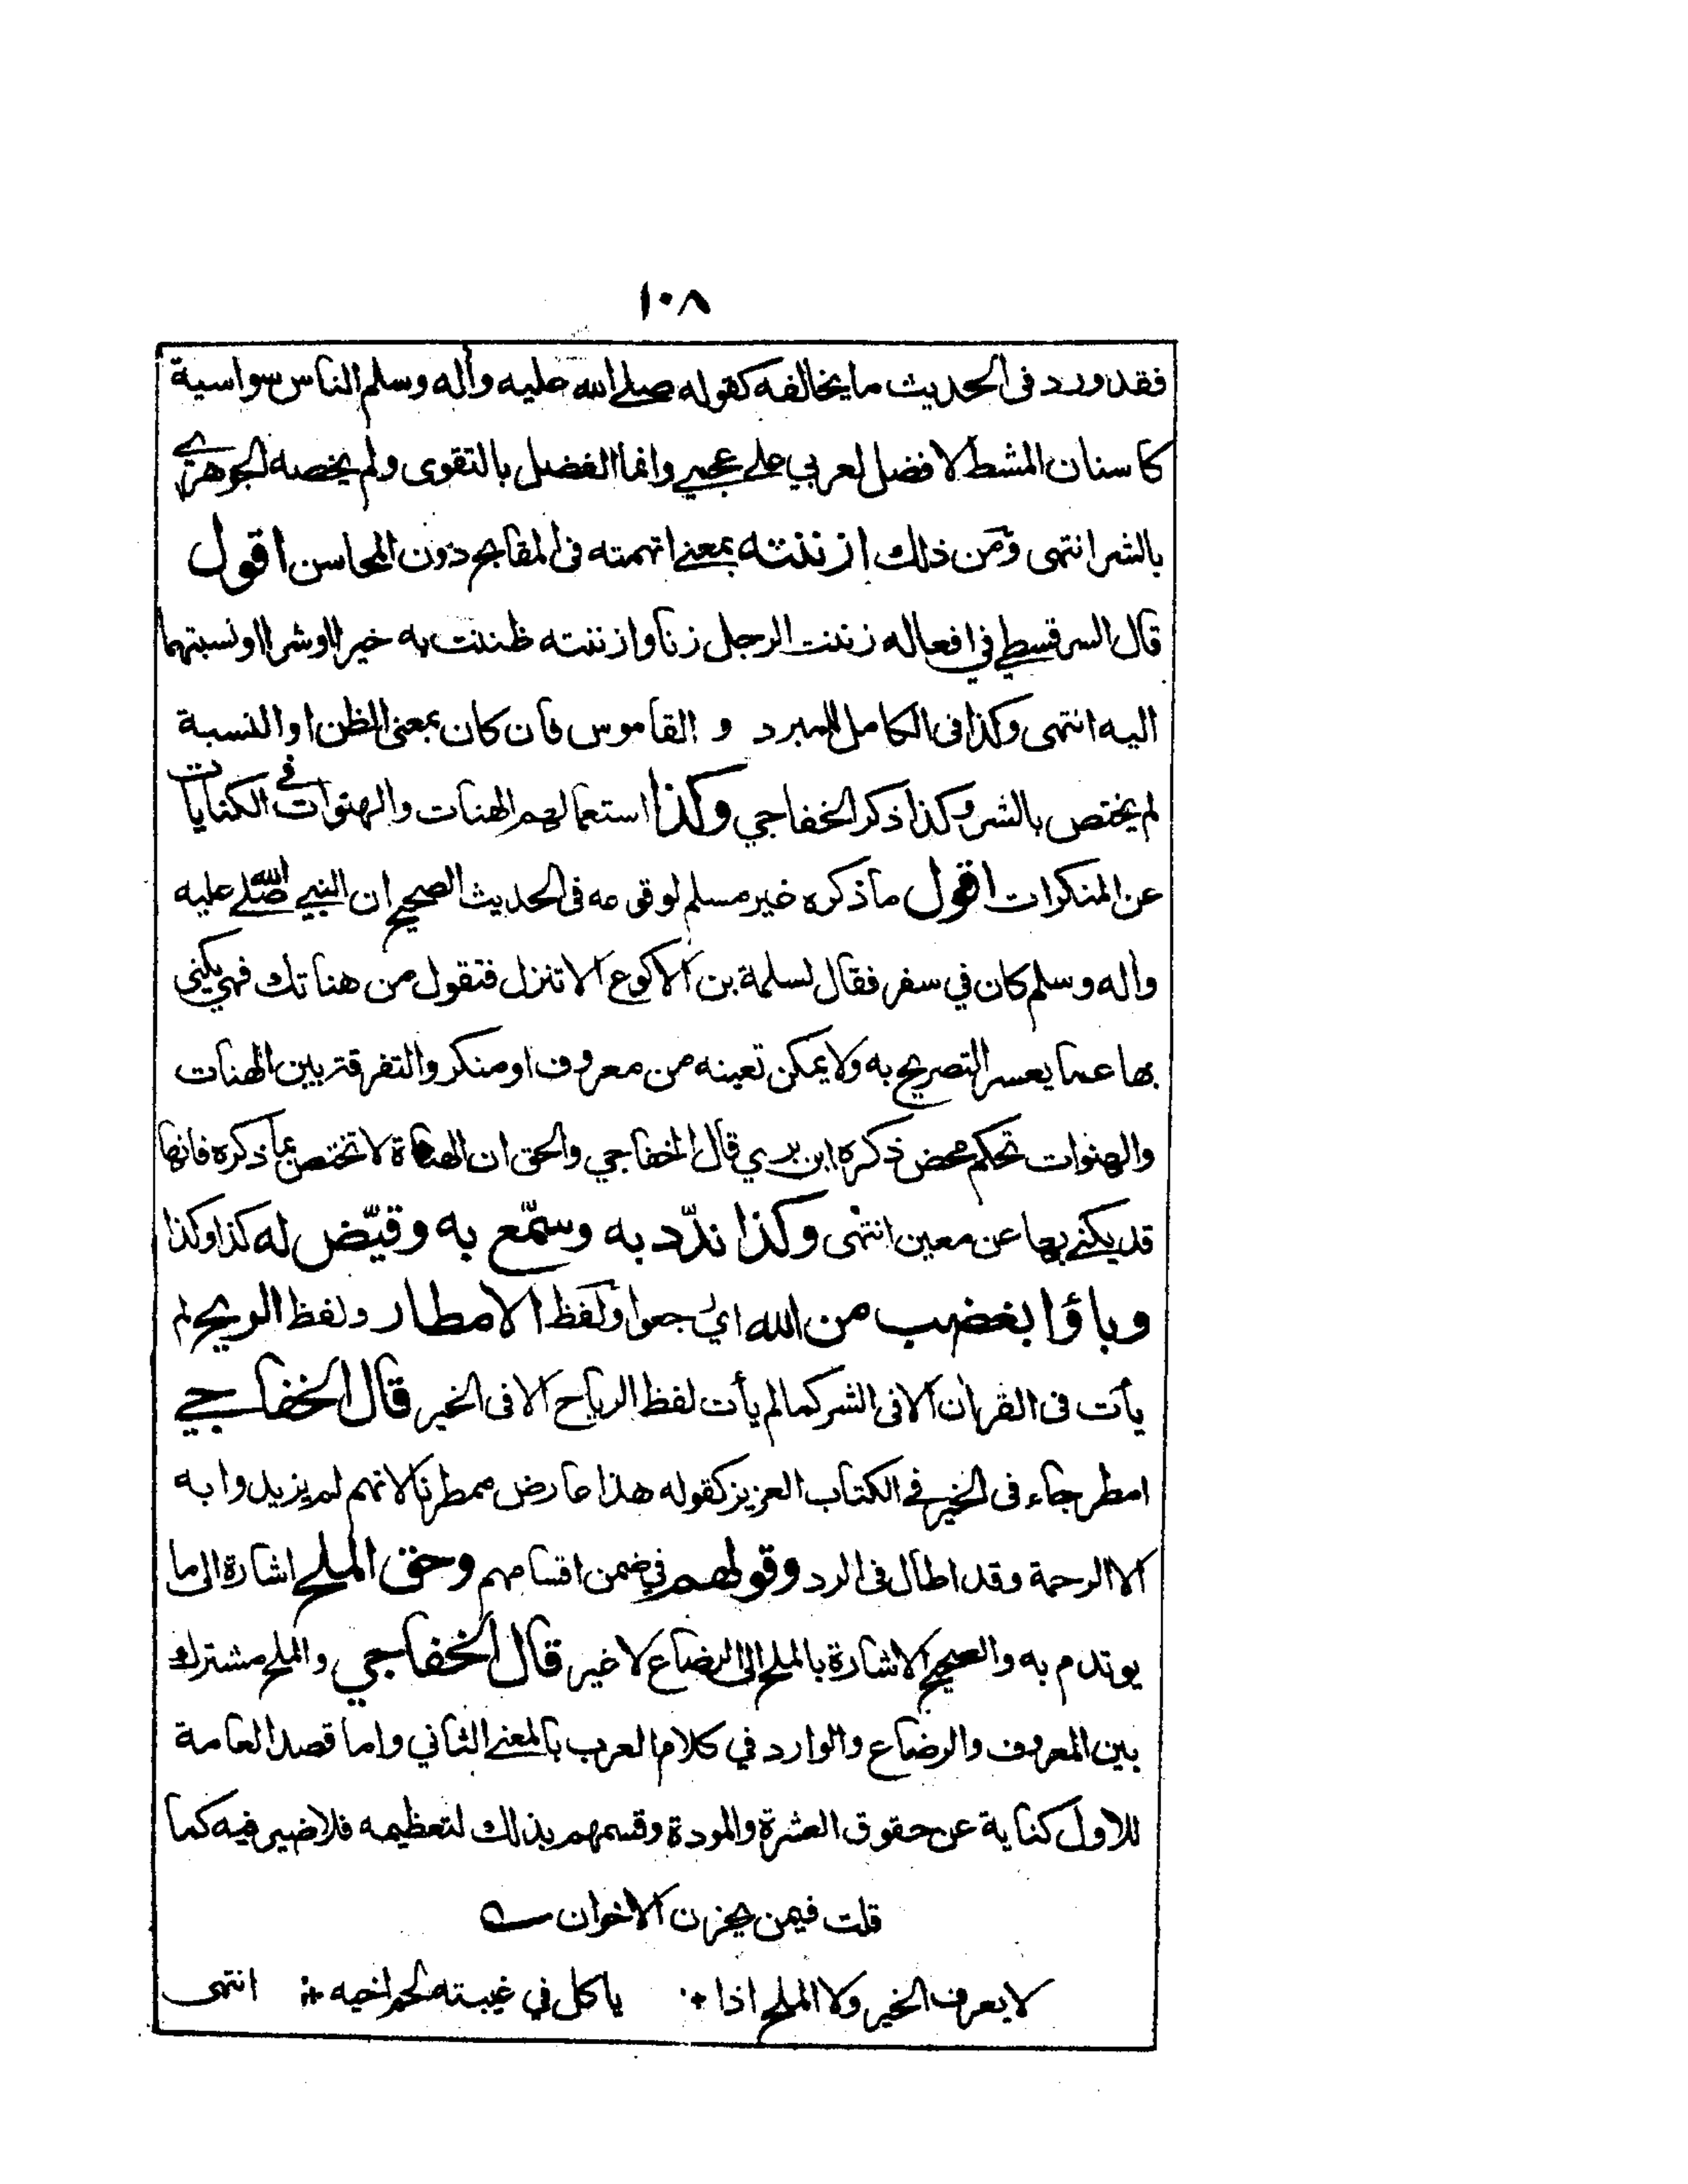 ١٠٨
فقد ورد فى الحديث ما يخالفه كقوله صلى الله عليه وأله وسلم الناس سواسية
كاسنان المشط لا فضل لعربي على عجمي وانما الفضل بالتقوى ولم يخصه الجوهري
بالشر انتهى ومن ذلك ازننته بمعنى اتهمته فى المقابح دون المحاسن اقول
قال السرقسطي في افعاله زننت الرجل زنا وازننته ظننت به خيرا اوشرا اونسبتهما
اليه انتهى وكذا فى الكامل للمبرد و القاموس فان كان بمعنى الظن او النسبة
لم يختص بالشر وكذا ذكر الخفاجي وكذا استعمالهم الهنات والهنوات في الكنايات
عن المنكرات اقول ما ذكره غير مسلم لوقوعه فى الحديث الصحيح ان النبي صلى الله عليه
وأله وسلم كان في سفر فقال لسلمة بن الاكوع الا تنزل فتقول من هناتك فهي يكنى
بها عما يعسر التصريح به ولا يمكن تعينه من معروف او منكر والتفرقة بين الهنات
والهنوات تحكم محض ذكره ابن بري قال الخفاجي والحق ان الهناة لا تختص بما ذكره فانها
قد يكنى بها عن معين انتهى وكذا ندّد به وسمّع به وقيّض له كذا وكذا
وباؤا بغضب من الله اي رجعوا ولفظ الامطار ولفظ الريح لم
يأت فى القرأن الا فى الشر كما لم يأت لفظ الرياح الا فى الخير قال الخفاجي
امطر جاء فى الخير في الكتاب العزيز كقوله هذا عارض ممطرنا لانهم لم يريدوا به
الا الرحمة وقد اطال فى الرد وقولهم في ضمن اقسامهم وحق الملح اشارة الى ما
يوتدم به والصحيح الاشارة بالملح الى الرضاع لا غير قال الخفاجي والملح مشترك
بين المعروف والرضاع والوارد في كلام العرب بالمعنى الثاني واما قصد العامة
للاول كناية عن حقوق العشرة والمودة وقسمهم بذلك لتعظيمه فلا ضير فيه كما
قلت فيمن يحزن الاخوان
لا يعرف الخير ولا الملح اذا ياكل في غيبته لحم اخيه انتهى